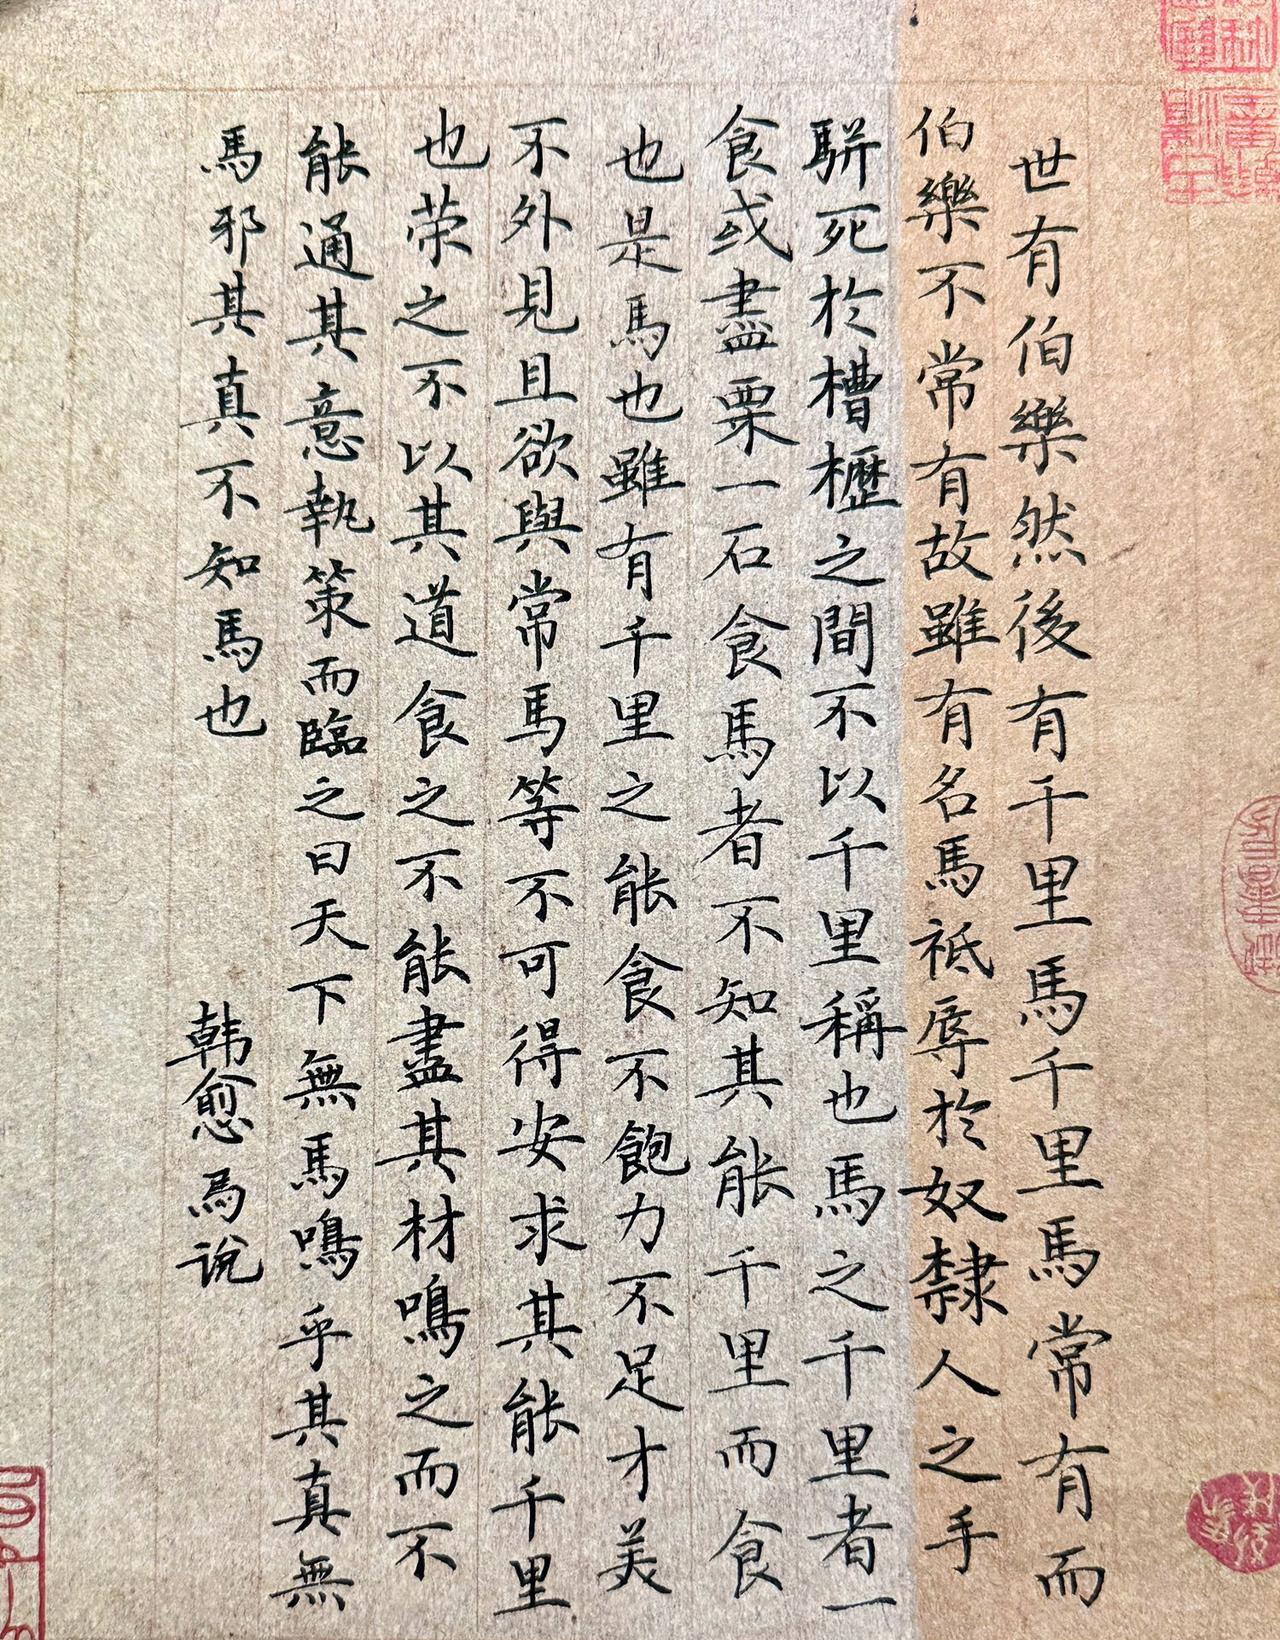 世有伯樂然後有千里馬千里馬常有而
伯樂不常有故雖有名馬祗辱於奴隸人之手
駢死於槽櫪之間不以千里稱也馬之千里者一
食或盡粟一石食馬者不知其能千里而食
也是馬也雖有千里之能食不飽力不足才美
不外見且欲與常馬等不可得安求其能千里
也荣之不以其道食之不能盡其材鳴之而不
能通其意執策而臨之曰天下無馬鳴乎其真無
馬邪其真不知馬也
韩愈馬说